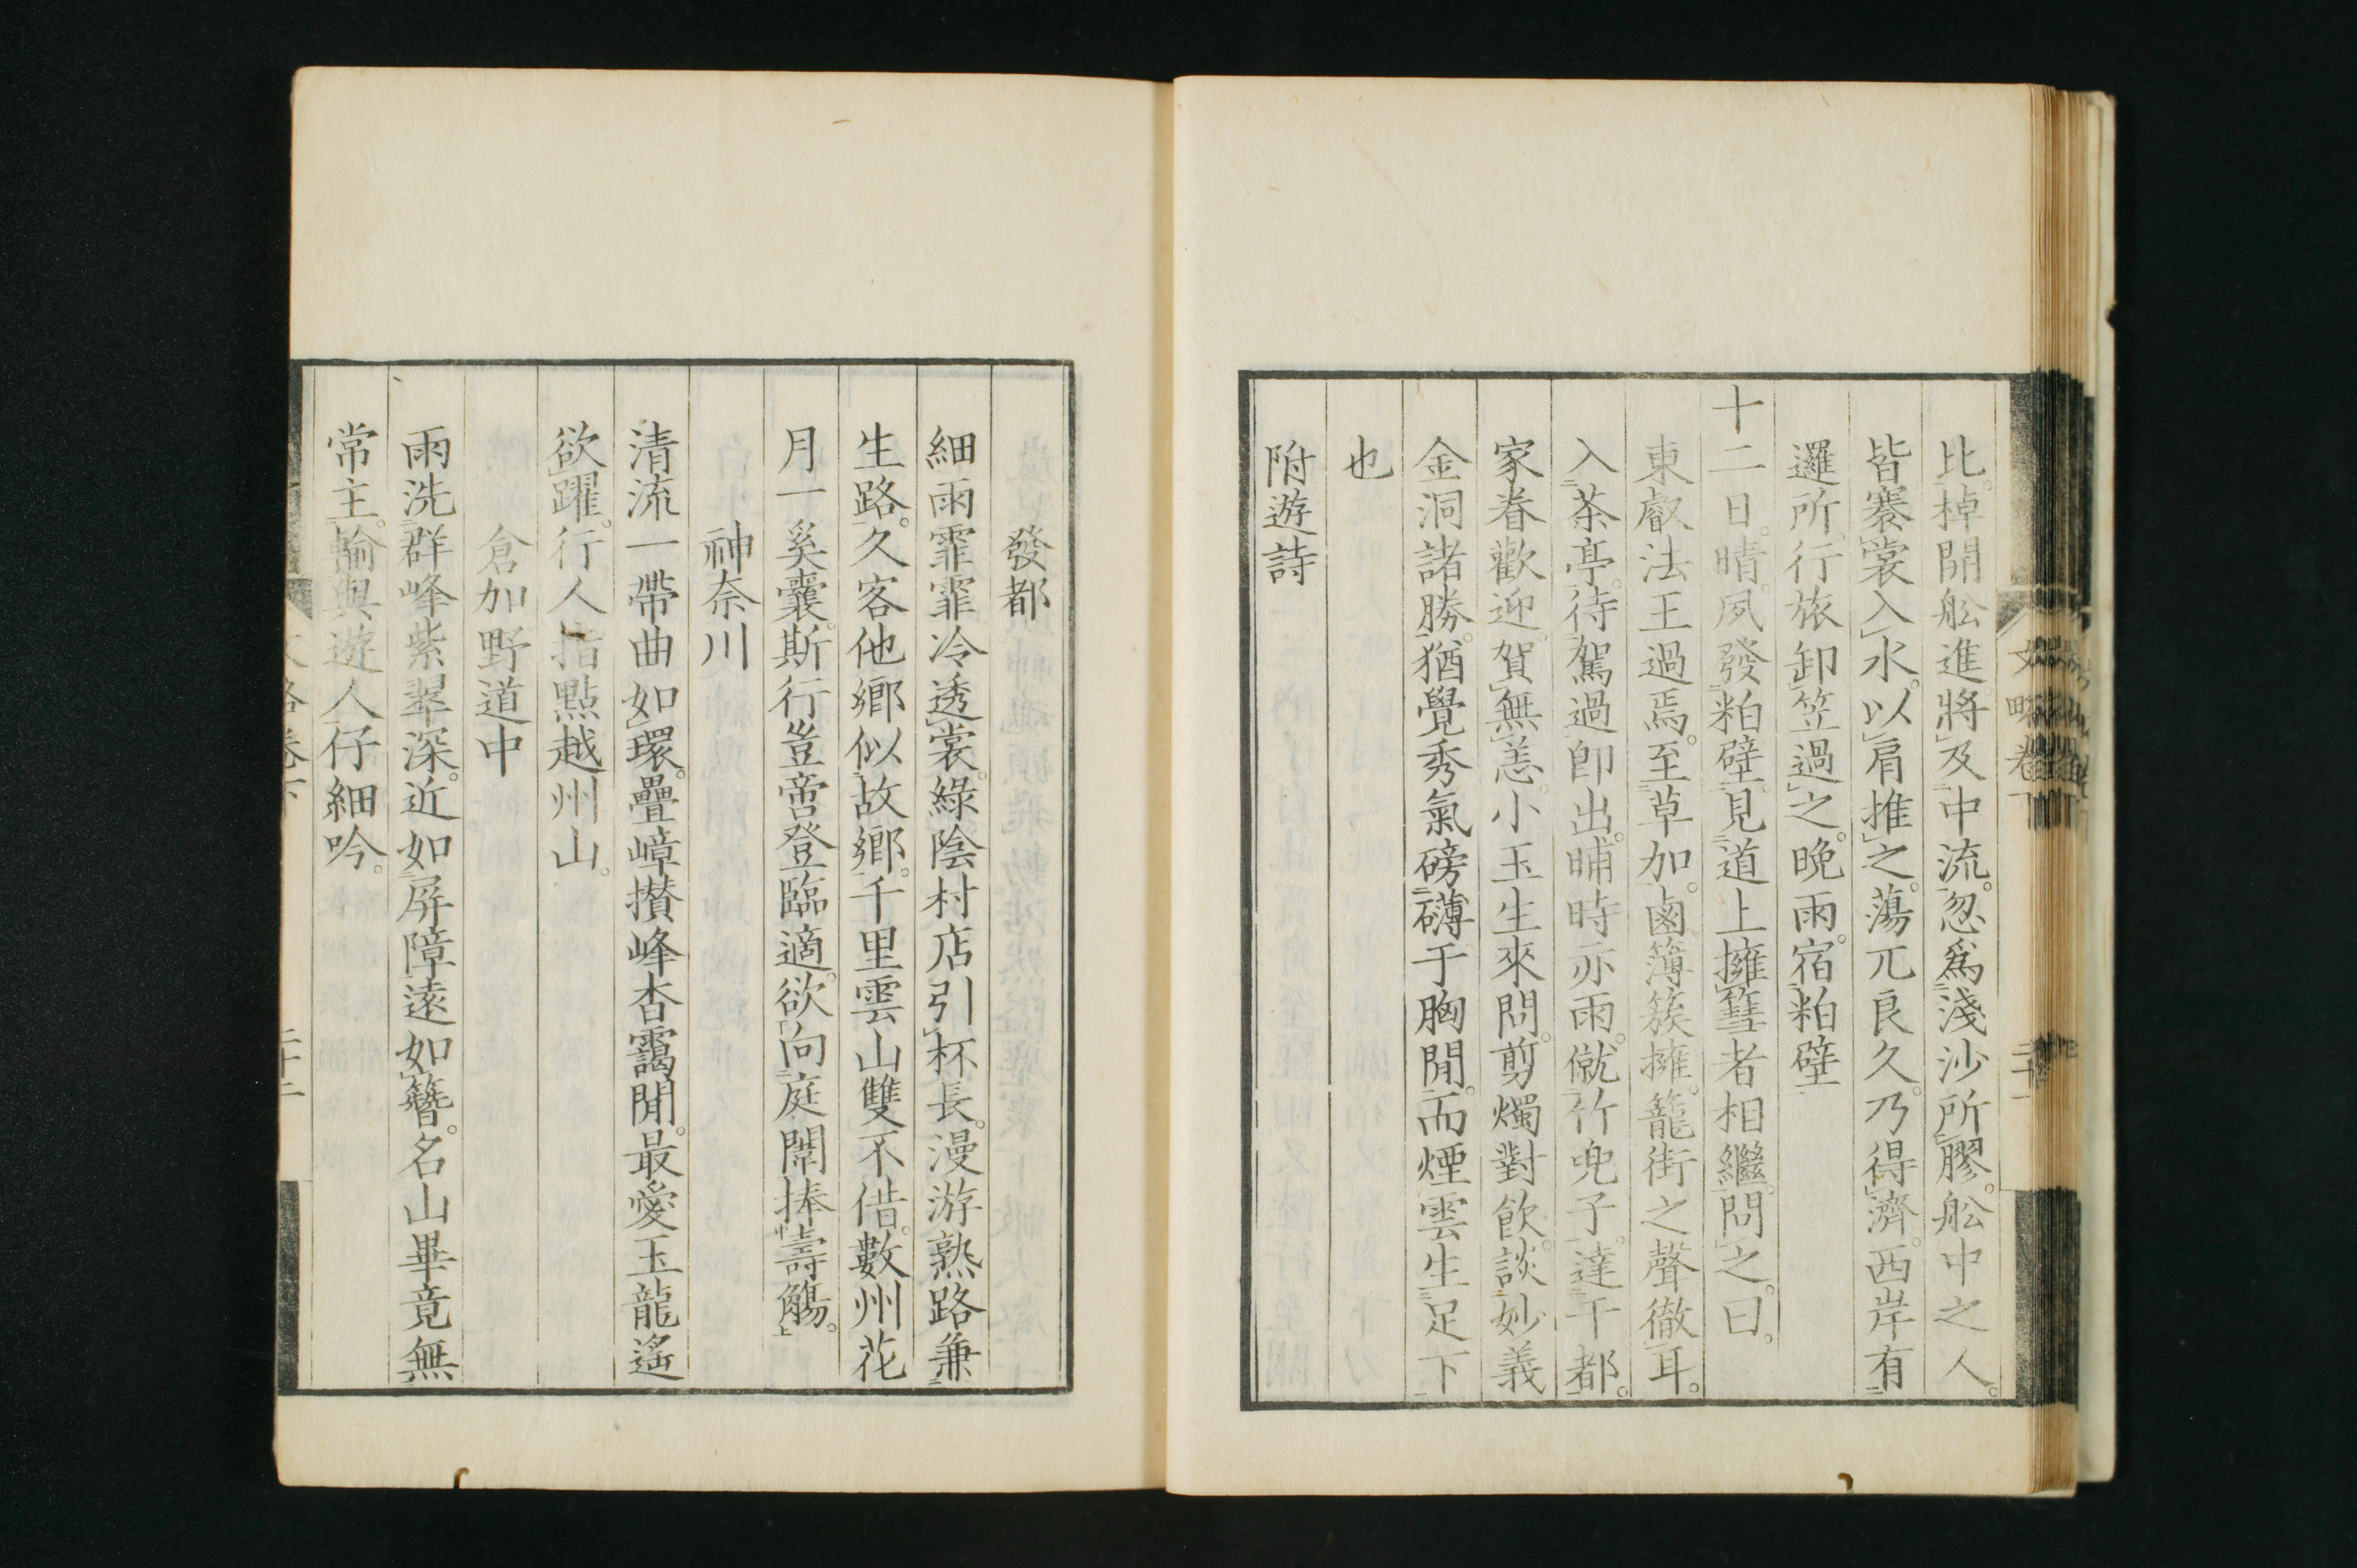 比。棹開舩進。將及中流。忽爲淺沙所膠。舩中之人。
皆褰裳入水。以肩推之。蕩兀良久。乃得濟。西岸有
邏所。行旅卸笠過之。晚雨。宿粕壁
十二日。晴。夙發粕壁。見道上擁篲者相繼。問之。曰。
東叡法王過焉。至草加。鹵簿簇擁。籠街之聲徹耳。
入茶亭。待駕過卽出。晡時亦雨。僦竹兜子。達于都。
家眷歡迎。賀無恙。小玉生來問。剪燭對飮。談妙義
金洞諸勝。猶覺秀氣磅礴于胸閒。而煙雲生足下
也
附遊詩
文略卷下
二十一
發都
細雨霏霏冷透裳。綠陰村店引杯長。漫游熟路兼
生路。久客他鄉似故鄉。千里雲山雙不借。數州花
月一奚囊。斯行豈啻登臨適。欲向庭闈捧壽觴。
神奈川
清流一帶曲如環。疊嶂攅峰杳靄閒。最愛玉龍遙
欲躍。行人指點越州山。
倉加野道中
雨洗群峰紫翠深。近如屏障遠如簪。名山畢竟無
常主。輸與遊人仔細吟。
文略卷下
二十二